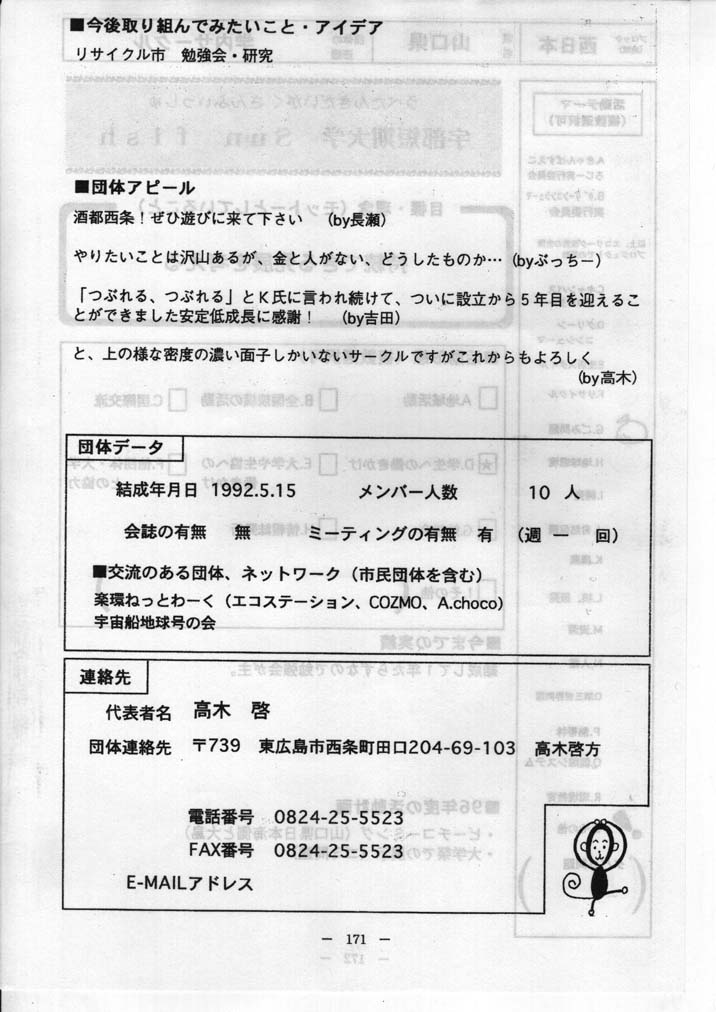 ■今後取り組んでみたいこと・アイデア
リサイクル市　勉強会・研究
■団体アピール
酒都西条！ぜひ遊びに来て下さい　（by長瀬）
やりたいことは沢山あるが、金と人がない、どうしたものか…（byぶっちー）
「つぶれる、つぶれる」とK氏に言われ続けて、ついに設立から５年目を迎えるこ
とができました安定低成長に感謝！　（by吉田）
と、上の様な密度の濃い面子しかいないサークルですがこれからもよろしく
（by高木）
団体データ
結成年月日　1992.5.15　メンバー人数　10　人
会誌の有無　無　ミーティングの有無　有　（週　一　回）
■交流のある団体、ネットワーク（市民団体を含む）
楽環ねっとわーく（エコステーション、COZMO、A.choco）
宇宙船地球号の会
連絡先
代表者名　高木　啓
団体連絡先　〒739　東広島市西条町田口204-69-103　高木啓方
電話番号　0824-25-5523
FAX番号　0824-25-5523
E-MAILアドレス
－ 171 －